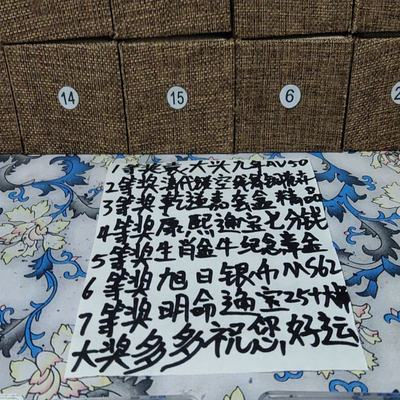 14
15
6
2
1等奖袁大头九年AU50
2等奖清代镂空
3等奖乾通嘉玄金精品
4等奖康熙通宝七分钱
5等奖生肖金牛纪念章金
6等奖旭日银币MS62
7等奖明命通宝25+大样
大奖多多祝您好运